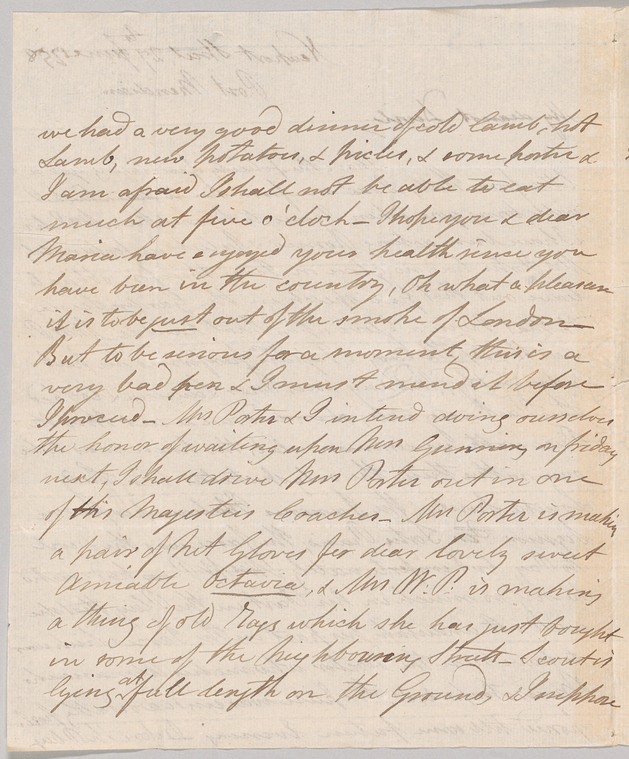 we had a very good dinner of cold lamb, hot
Lamb, new potatoes, & pickles, & some porter &
I am afraid I shall not be able to eat
much at five o'clock – I hope you & dear
Maria have enjoyed your health since you
have been in the country, Oh what a pleasure
it is to be just out of the smoke of London –
But to be serious for a moment, this is a
very bad pen & I must mend it before
I proceed – Mrs Porter & I intend doing ourselves
the honor of waiting upon Mrs Gunning on friday
next, I shall drive Mrs Porter out in one
of his Majesties Coaches – Mrs Porter is making
a pair of Net Gloves for dear lovely sweet
Amiable Octavia, & Mrs W. P. is making
a thing of old Rags which she has just bought
in some of the Neighbouring Streets – Scout is
lying at full length on the Ground, & I suppose